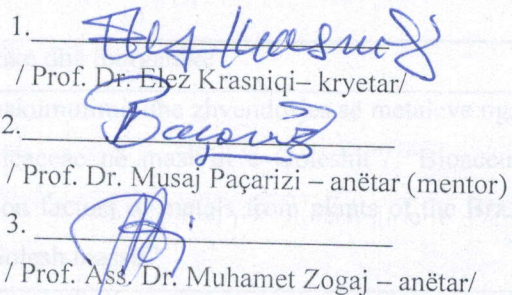 1. Elez Krasniqi
/ Prof. Dr. Elez Krasniqi– kryetar/
2.
/ Prof. Dr. Musaj Paçarizi – anëtar (mentor)
3.
/ Prof. Ass. Dr. Muhamet Zogaj – anëtar/